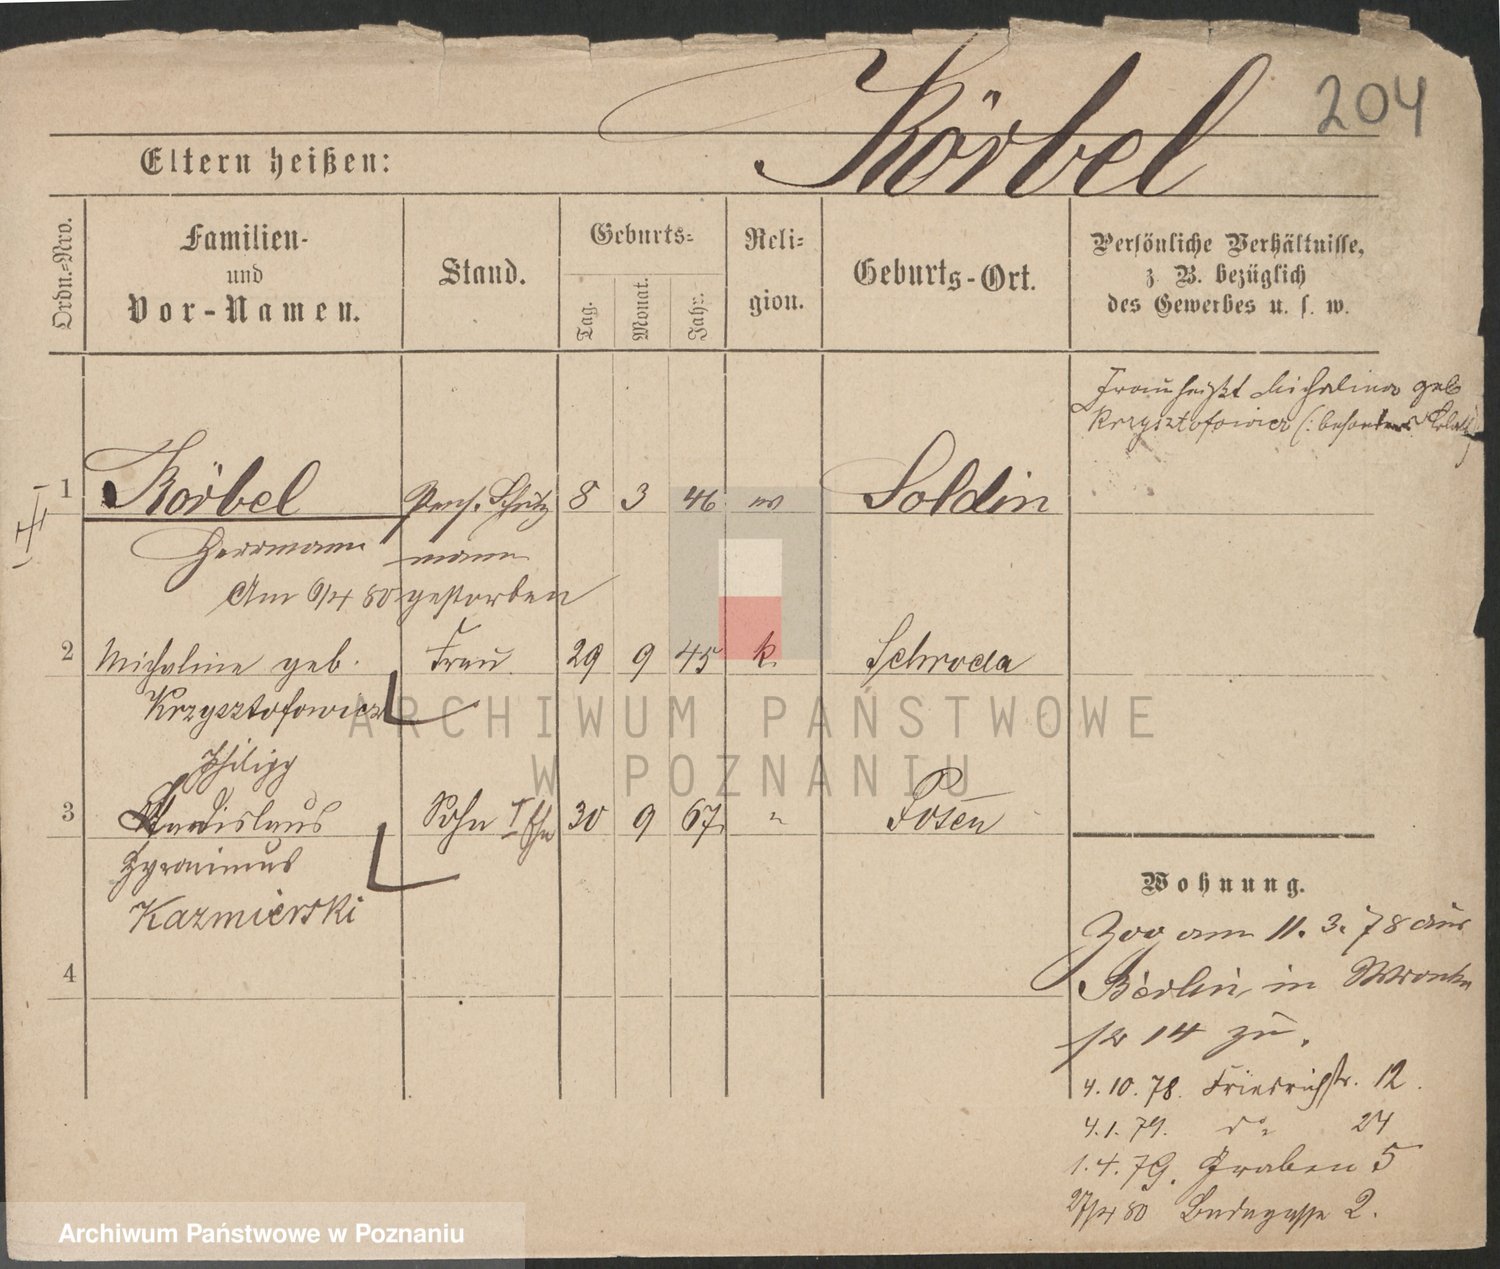 204
Körbel
Eltern heißen:
Ordn.-Nro.
Familien-
und
Vor-Namen.
Stand.
Geburts-
Tag.
Monat.
Jahr.
Reli-
gion.
Geburts-Ort.
Persönliche Verhältnisse,
z. B. bezüglich
des Gewerbes u. s. w.
Frau heißt Michalina geb
Krzysztofowicz (: besonders
1 Körbel pens. Schutz 8 3 46 Soldin
Herrmann mann
Am 6/4 80 gestorben
2 Michaline geb. Frau 29 9 45 k. Schroda
Krzysztofowicz
Philipp
3 Stanislaus Sohn 30 9 67 " Posen
Hyronimus
Kazmierski
4
Wohnung.
Zog am 11. 3. 78 aus
Berlin in Wronker
str 14 zu.
4. 10. 78. Friedrichstr. 12.
4. 1. 79. do 24
1. 4. 79. Graben 5
27/4 80 2.
ARCHIWUM PAŃSTWOWE
W POZNANIU
Archiwum Państwowe w Poznaniu